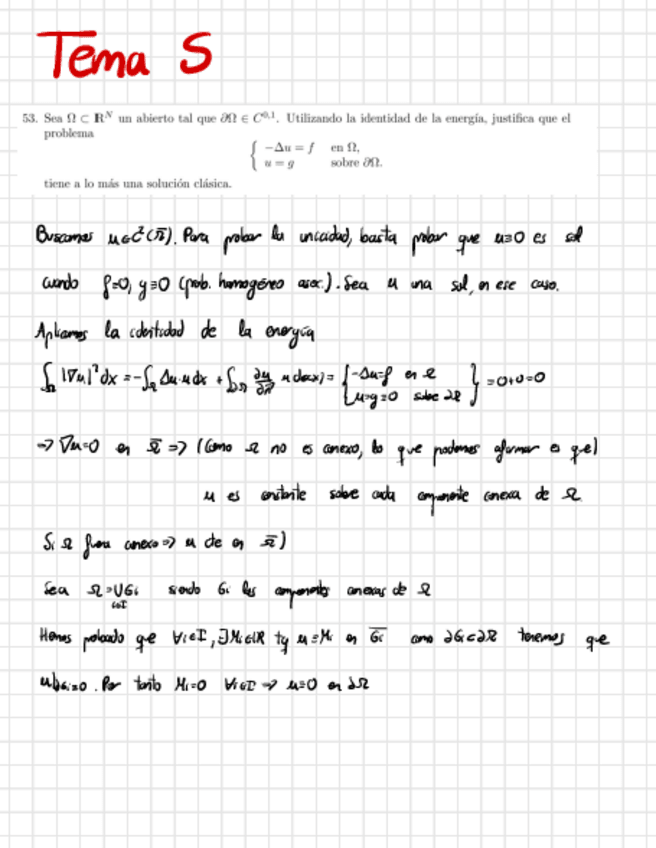 Tema 5
53. Sea Ω ⊂ R^N un abierto tal que ∂Ω ∈ C^{0,1}. Utilizando la identidad de la energía, justifica que el
problema
{ −Δu = f en Ω,
u = g sobre ∂Ω.
tiene a lo más una solución clásica.
Buscamos u∈C²(Ω̄). Para probar la unicidad, basta probar que u≡0 es sol
cuando f=0, g≡0 (prob. homogéneo asoc.). Sea u una sol, en ese caso.
Aplicamos la identidad de la energía
∫_Ω |∇u|² dx = -∫_Ω Δu·u dx + ∫_∂Ω ∂u/∂n u dσ(x) = { -Δu=f en Ω
u=g=0 sobre ∂Ω } = 0+0=0
⇒ ∇u=0 en Ω̄ ⇒ (Como Ω no es conexo, lo que podemos afirmar es que)
u es constante sobre cada componente conexa de Ω
Si Ω fuera conexo ⇒ u cte en Ω̄)
Sea Ω=∪Gi siendo Gi las componentes conexas de Ω
i∈I
Hemos probado que ∀i∈I, ∃Mi∈R tq u=Mi en Gi como ∂Gi⊂∂Ω tenemos que
u|∂Gi=0. Por tanto Mi=0 ∀i∈I ⇒ u≡0 en ∂Ω